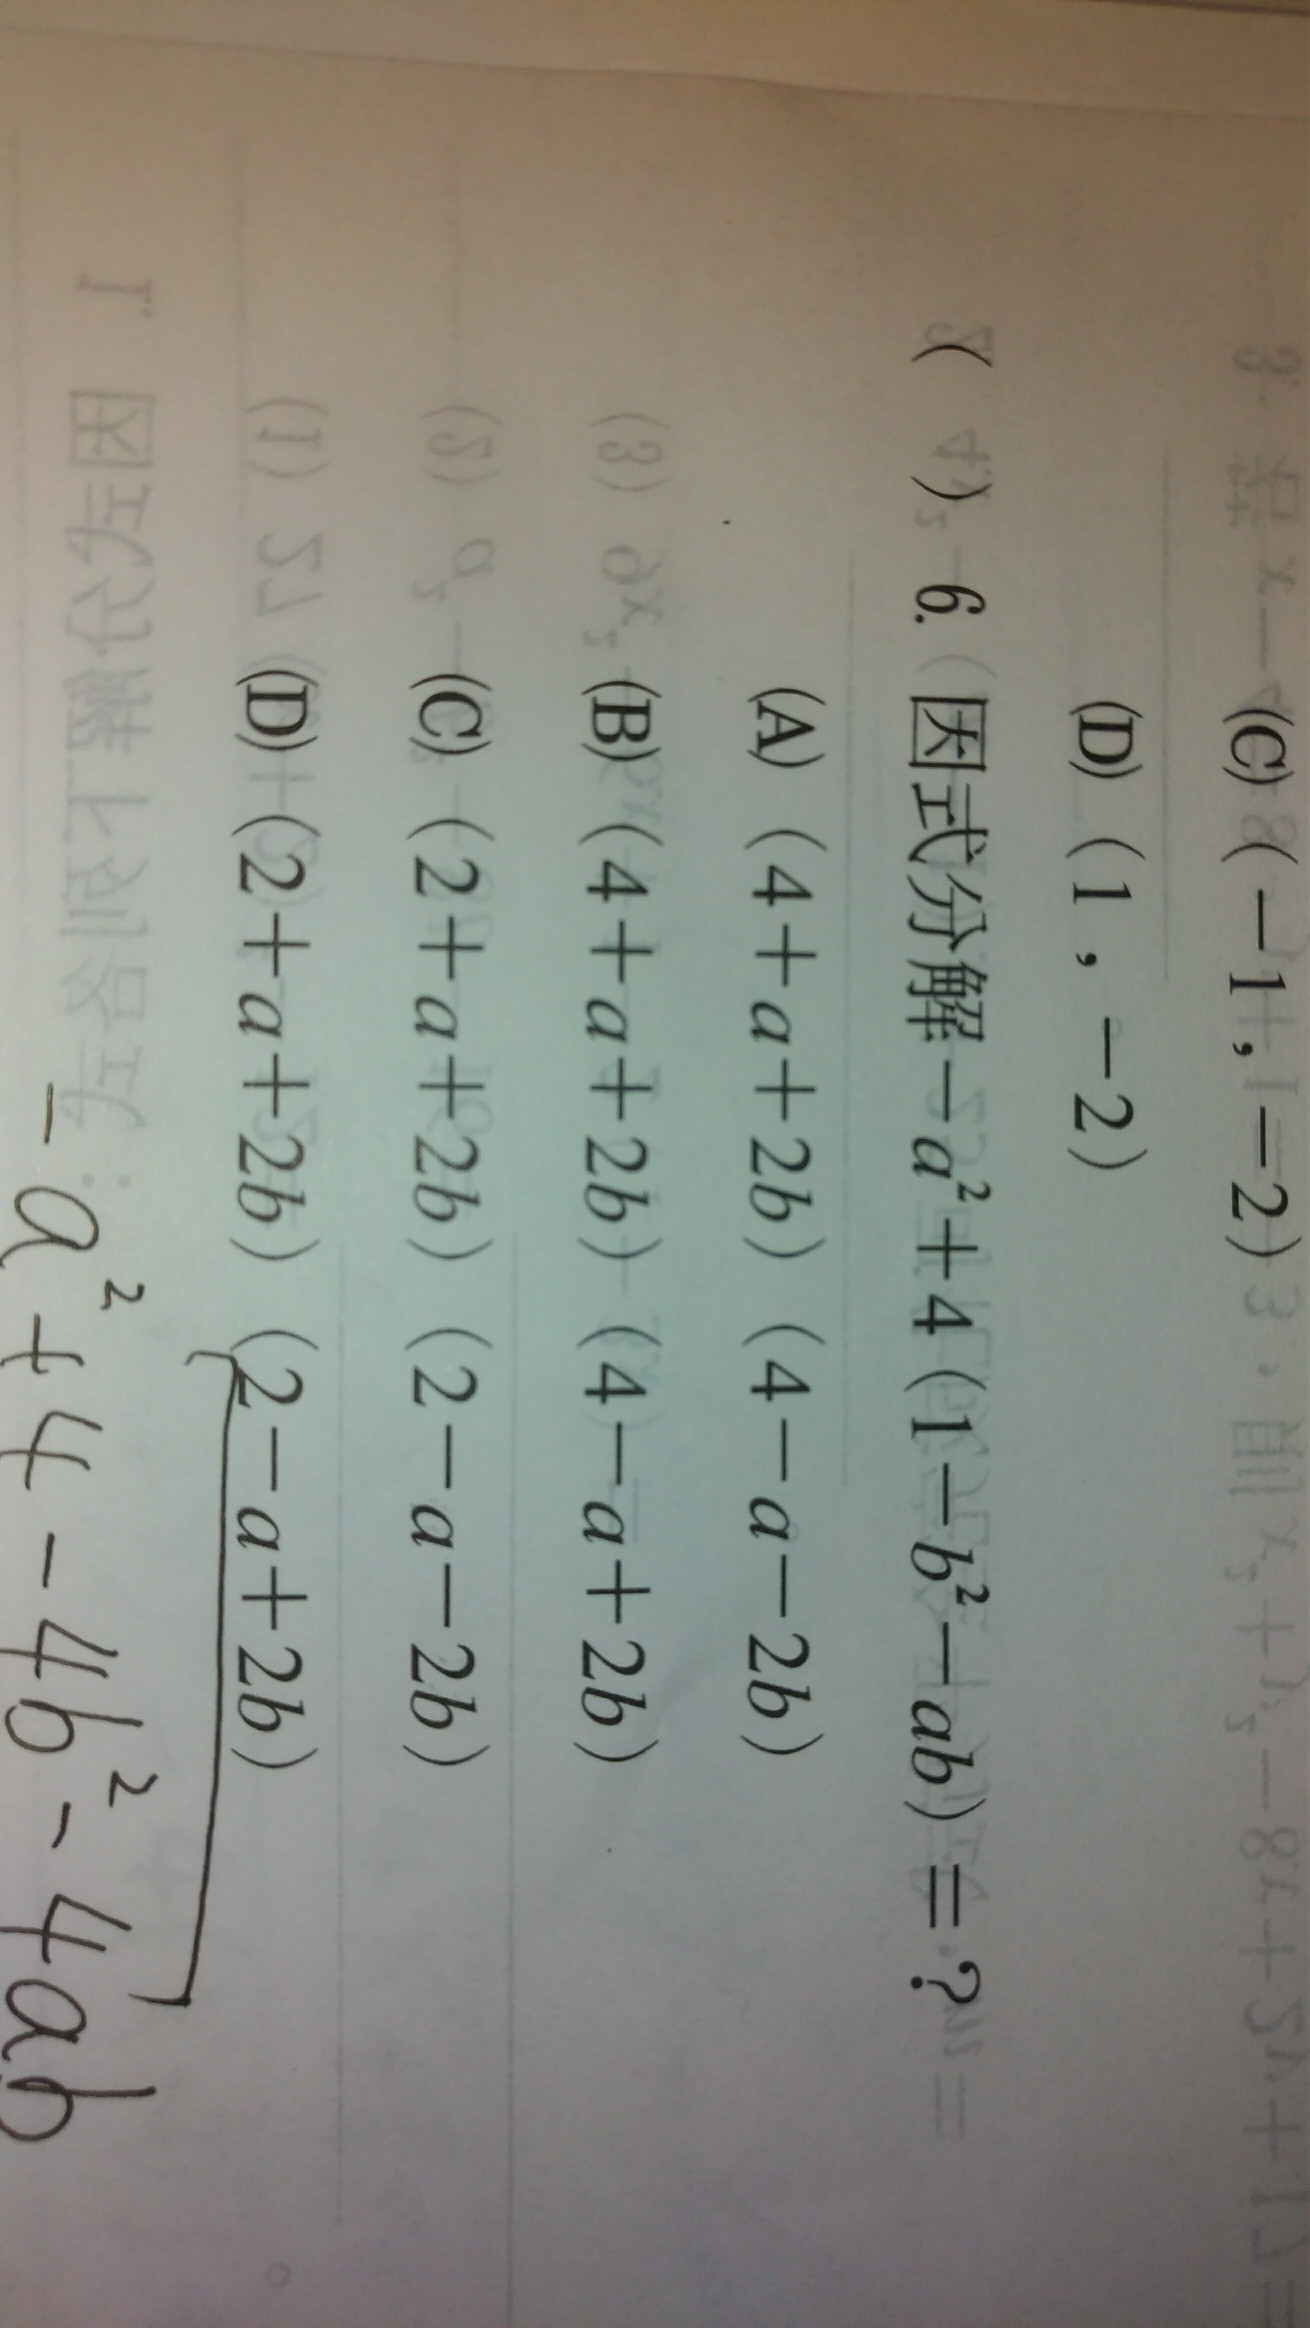 (C) (－1,－2)
(D) (1,－2)
(　) 6. 因式分解－a²＋4(1－b²－ab)＝?
(A) (4＋a＋2b)(4－a－2b)
(B) (4＋a＋2b)(4－a＋2b)
(C) (2＋a＋2b)(2－a－2b)
(D) (2＋a＋2b)(2－a＋2b)
－a²＋4－4b²－4ab